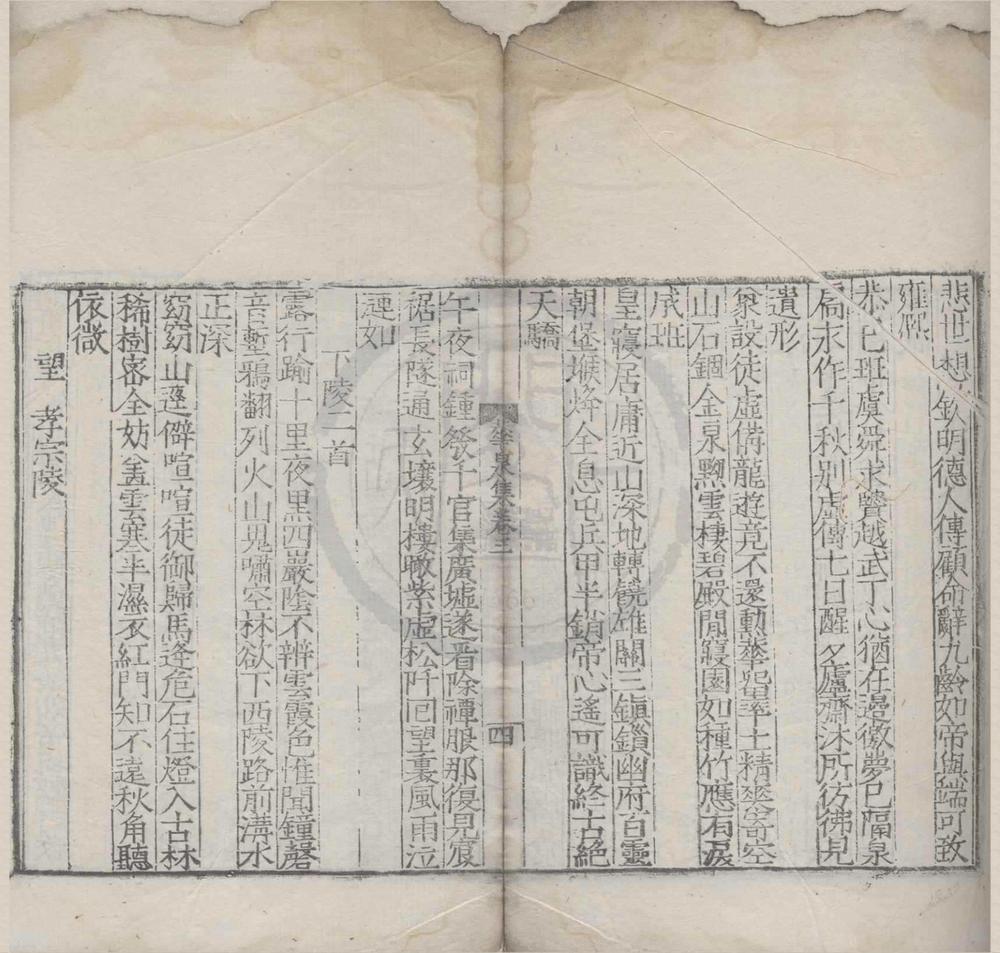 悲世想欽明德人傳顧命辭九齡如帝與端可致
雍熈
恭己班虞舜求賢越武丁心猶在邊徼夢已隔泉
扃永作千秋別虛傳七日醒夕廬齋沐所彷彿見
遺形
象設徒虛備龍遊竟不還勲華磬率土精爽寄空
山石錮金泉黝雲棲碧殿閒寢園如種竹應有淚
成斑
皇寢居庸近山深地轉饒雄關三鎮鑰幽府百靈
朝堡堠烽全息屯兵甲半銷帝心遙可識終古絕
天驕
華泉集卷三
四
午夜祠鍾發千官集廣墟遂晉除禫服那復見宸
裾長隧通玄壤明樓瞰紫虛松阡回望裏風雨泣
漣如
下陵二首
露行踰十里夜黑四巖陰不辨雲霞色惟聞鐘磬
音塹鴉翻列火山鬼嘯空林欲下西陵路前溝水
正深
窈窈山逕僻喧喧徒御歸馬逢危石住燈入古林
稀樹密全妨盖雲寒半濕衣紅門知不遠秋角聽
依微
望 孝宗陵